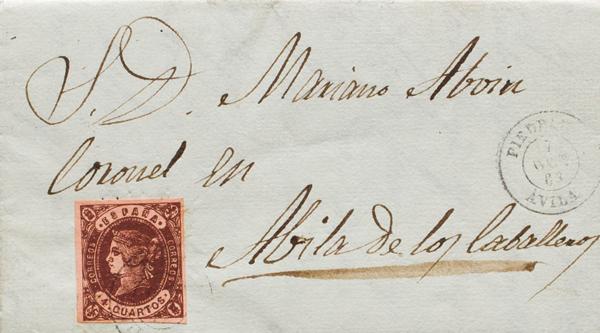 S. D. Mariano Aboin
Coronel en
Abila de los Caballeros
ESPAÑA
CORREOS
CORREOS
4 CUARTOS
7
63
AVILA